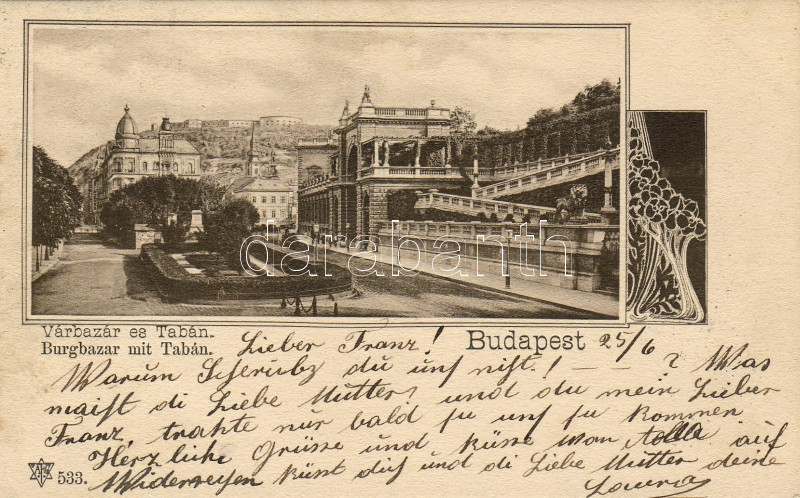 Várbazár es Tabán.
Burgbazar mit Tabán.
Budapest 25/6
darabanth
Lieber Franz!
Warum Scheribz du uns nist! – – ? Was
maist di Liebe Mutter! und du mein Lieber
Franz, trahte nur bald zu uns zu kommen
Herzliche Grüsse und küsse von Alle auf
Widersesen küst dich und di Liebe Mutter deine
533.